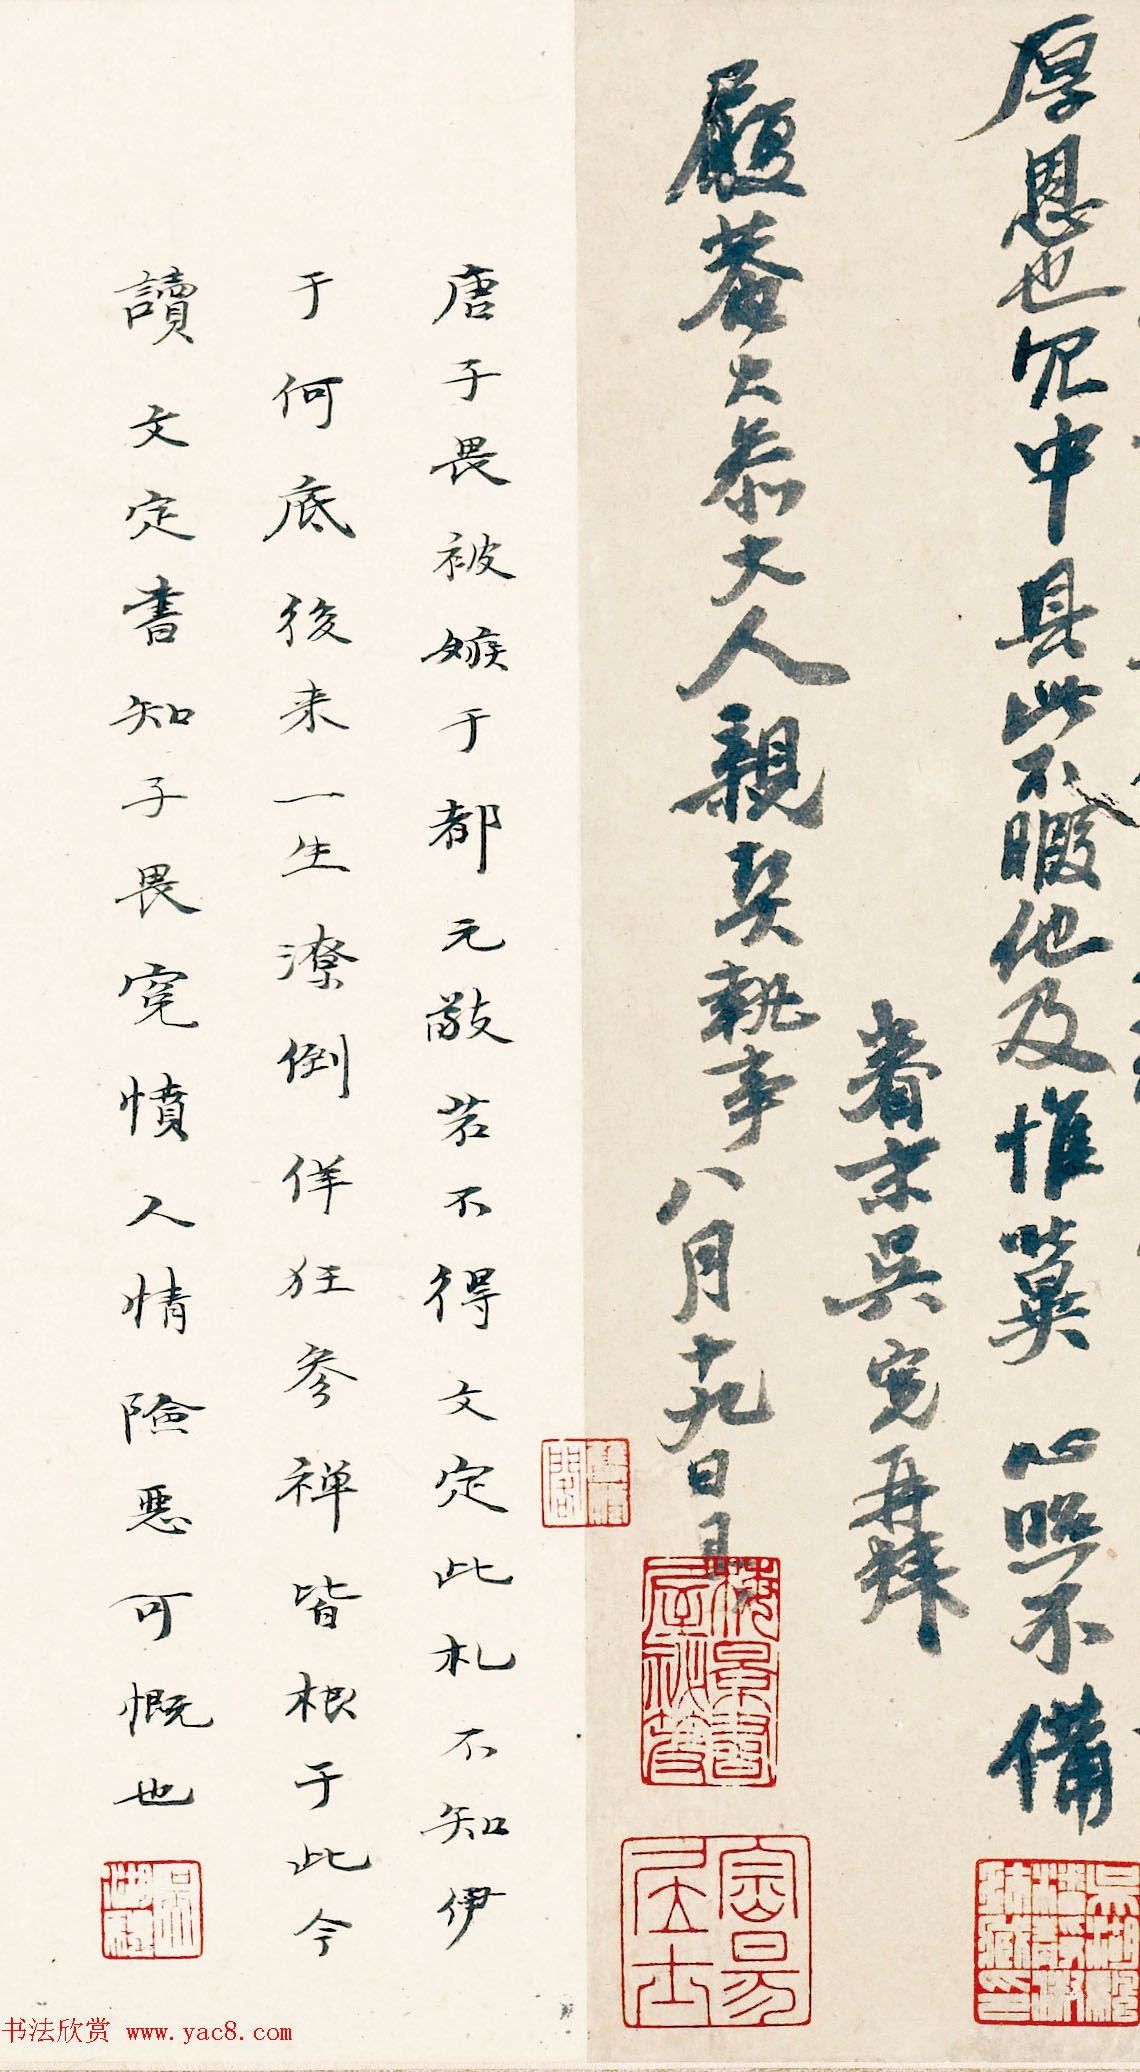 厚恩也冗中具此不暇他及惟冀 心照不備
眷末吳寬再拜
履菴大參大人親契執事八月十九日具
唐子畏被嫉于都元敬若不得文定此札不知伊
于何底後来一生潦倒佯狂參禅皆根于此今
讀文定書知子畏寃憤人情險惡可慨也
梅景書屋秘笈
書法欣赏 www.yac8.com